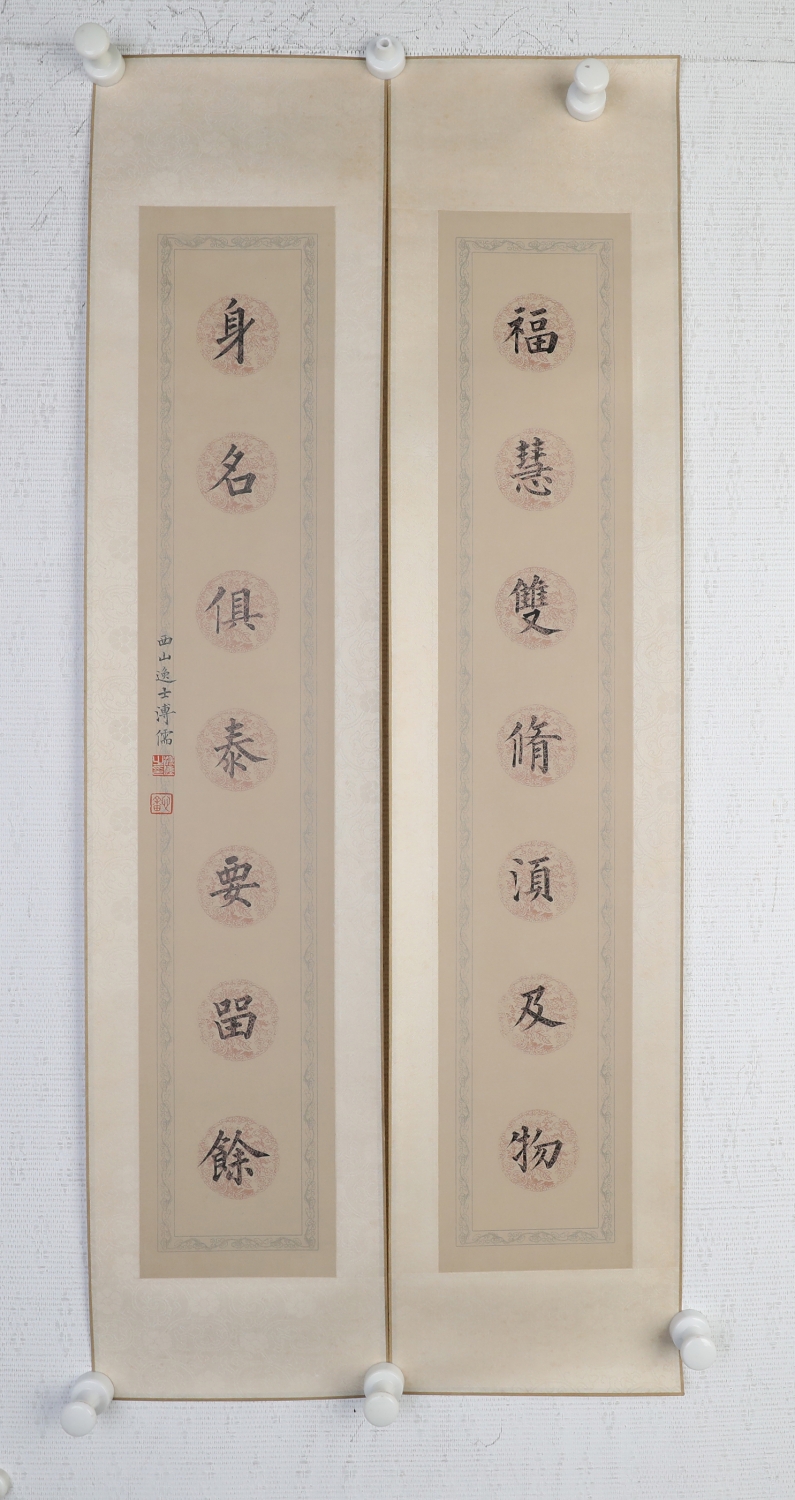 福慧雙脩湏及物
身名俱泰要畱餘
西山逸士溥儒